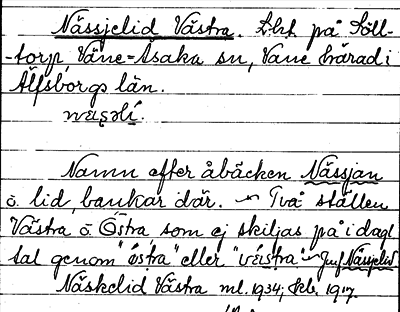 Nässjelid Västra. Lht. på Söll-
-torp, Väne-Åsaka sn, Väne härad i
Älfsborgs län.
Namn efter åbäcken Nässjan
o. lid, backar där. ~ Två ställen
Västra o. Östra som ej skiljas på i dagl
tal genom "östra" eller "västra" ~ Jmf Nässjelid
Näskelid Västra ml. 1934; kb. 1917.